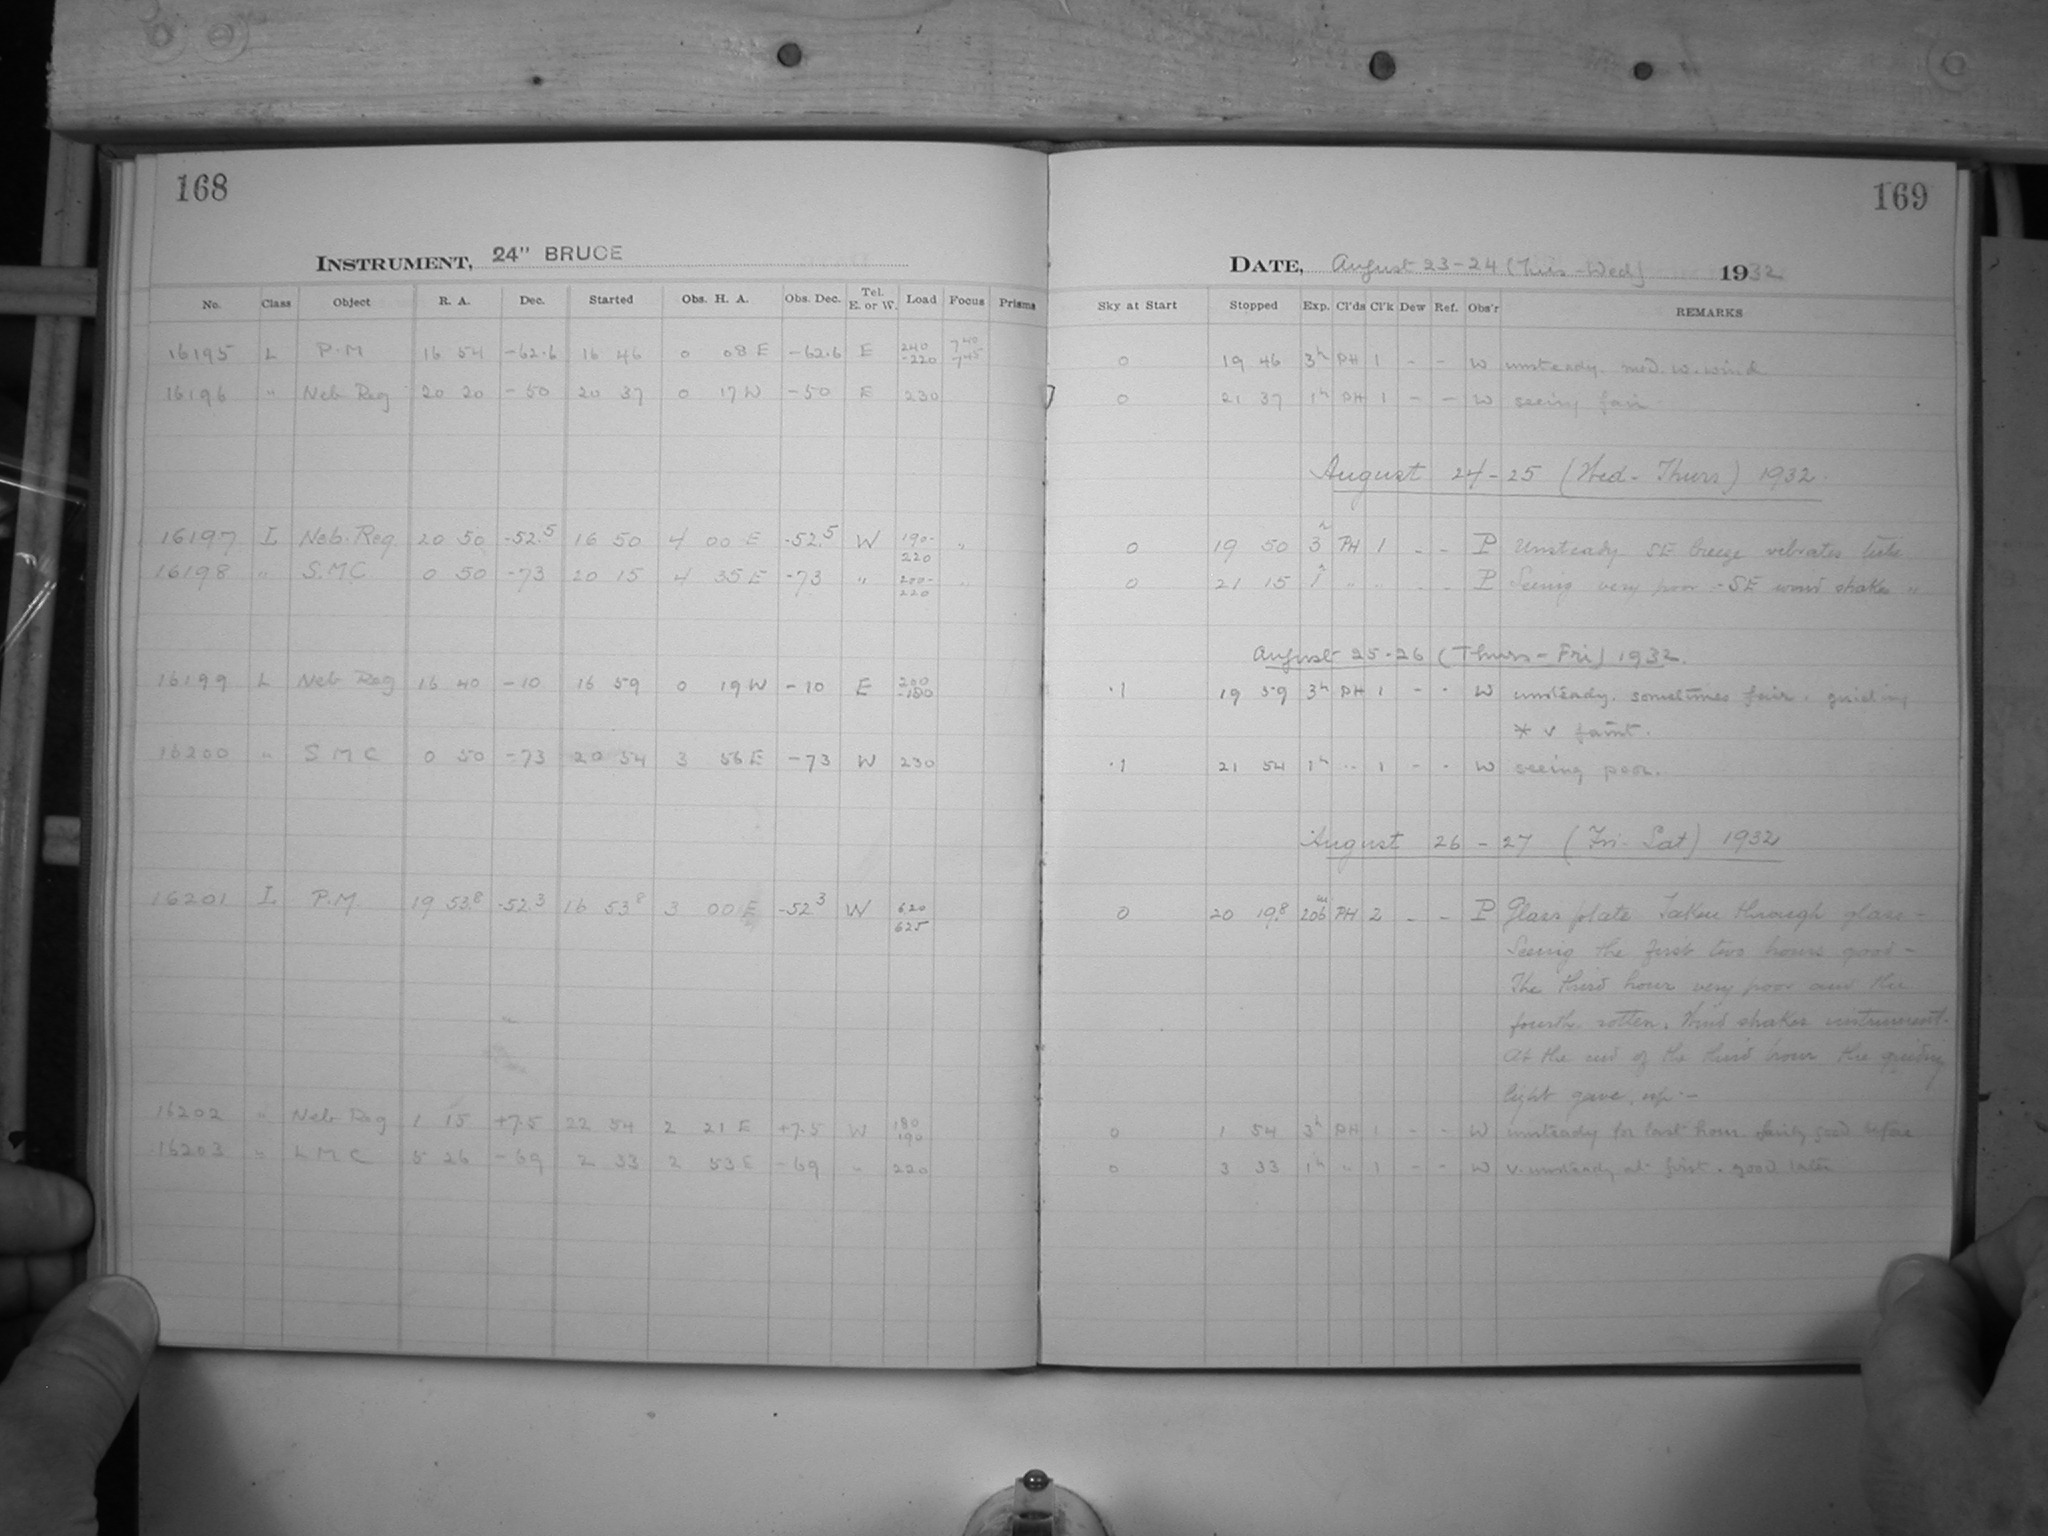 168
INSTRUMENT, 24" BRUCE
No. Class Object R. A. Dec. Started Obs. H. A. Obs. Dec. Tel. E. or W. Load Focus Prisms
16195 L P.M 16 54 -62.6 16 46 0 08 E -62.6 E 240 -220 740 -745
16196 " Neb Reg 20 20 -50 20 37 0 17 W -50 E 230
16197 I Neb. Reg 20 50 -52.5 16 50 4 00 E -52.5 W 190- 220 "
16198 " S.M.C 0 50 -73 20 15 4 35 E -73 " 200- 220 "
16199 L Neb Reg 16 40 -10 16 59 0 19 W -10 E 200 -180
16200 " S M C 0 50 -73 20 54 3 56 E -73 W 230
16201 I P.M. 19 53.8 -52.3 16 53.8 3 00 E -52.3 W 620 625
16202 " Neb Reg 1 15 +7.5 22 54 2 21 E +7.5 W 180 190
16203 " L M C 5 26 -69 2 33 2 53 E -69 " 220
169
DATE, August 23-24 (Tues-Wed) 1932
Sky at Start Stopped Exp. Cl'ds Cl'k Dew Ref. Obs'r REMARKS
0 19 46 3h PH 1 - - W unsteady. med. w. wind
0 21 37 1h PH 1 - - W seeing fair
August 24-25 (Wed-Thurs) 1932.
0 19 50 3h PH 1 - - P Unsteady SE breeze vibrates tube
0 21 15 1h " " - - P Seeing very poor - SE wind shakes "
August 25-26 (Thurs-Fri) 1932.
.1 19 59 3h PH 1 - - W unsteady. sometimes fair. guiding
* v faint.
.1 21 54 1h " 1 - - W seeing poor.
August 26-27 (Fri-Sat) 1932
0 20 19.8 206m PH 2 - - P Glass plate Taken through glass -
Seeing the first two hours good -
The third hour very poor and the
fourth rotten. Wind shakes instrument.
At the end of the third hour the guiding
light gave up. -
0 1 54 3h PH 1 - - W unsteady for last hour. fairly good before
0 3 33 1h " 1 - - W v. unsteady at first. good later